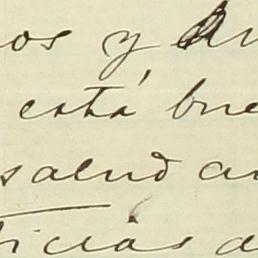 os y
está bue
salud a
ticias d